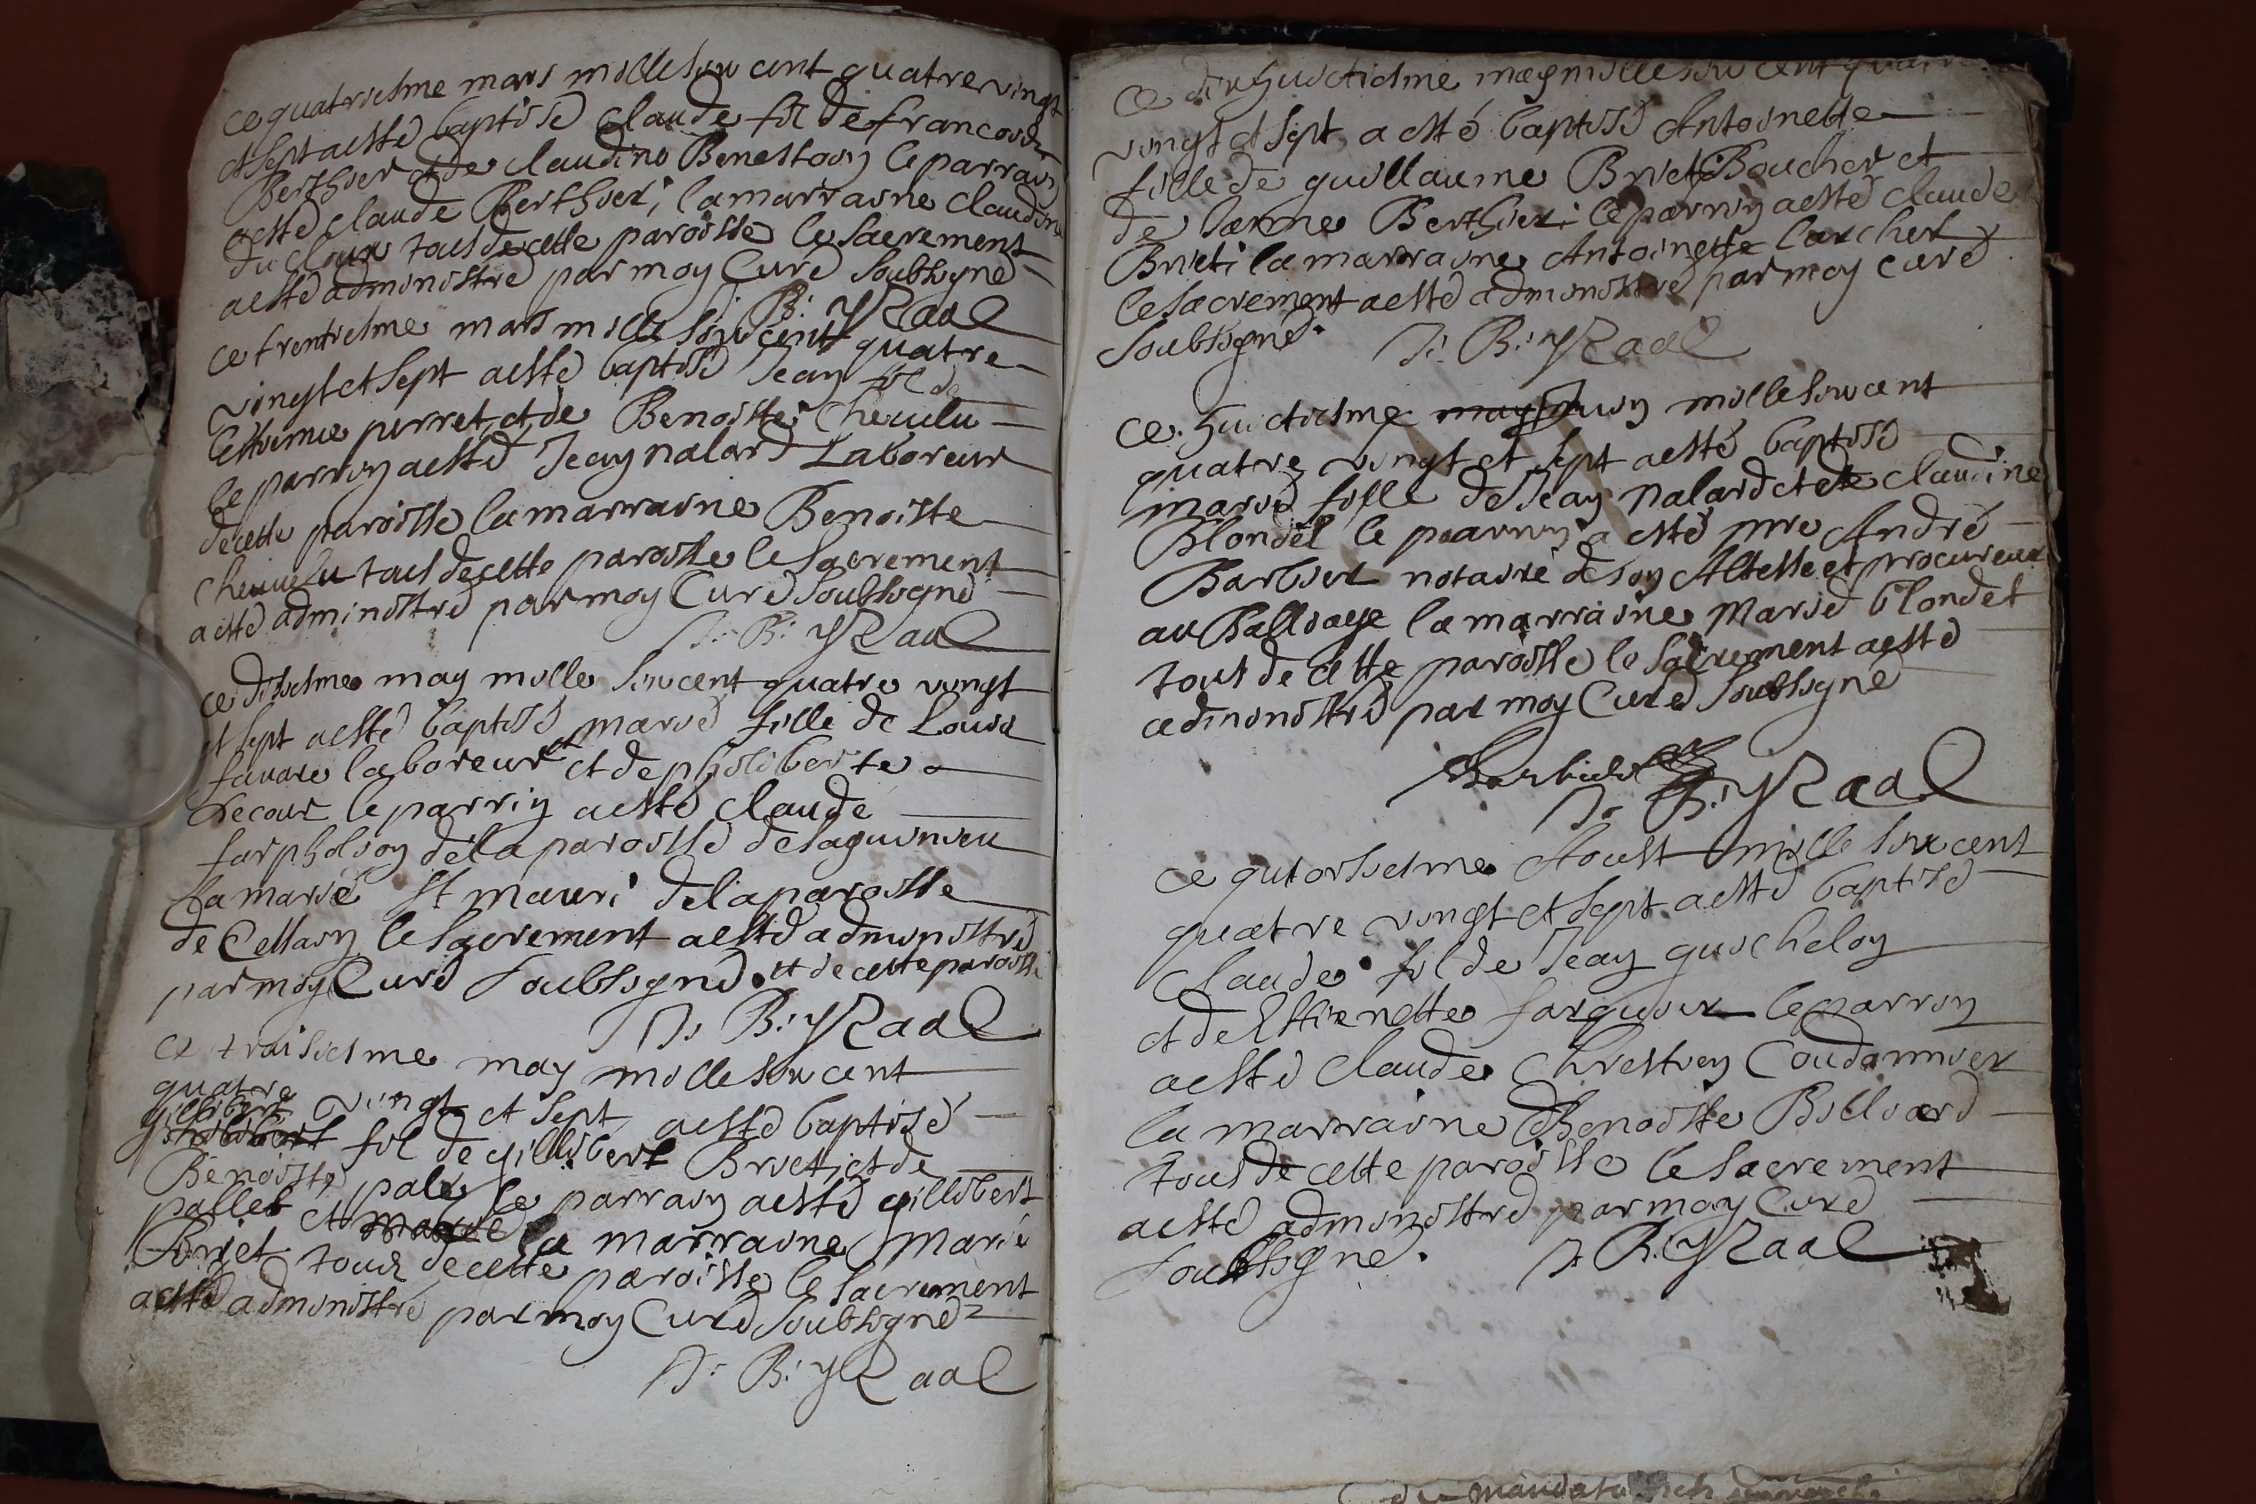 ce quatriesme mars mille six cent quatre vingt
et sept a esté baptisé claude fil de francois
Berthier et de claudine Benestoon le parrain
a esté claude Berthier, la marraine claudine
du cloux tous de cette paroisse le sacrement
a esté administré par moy Curé soubsigné
B: YRaal
ce trentiesme mars mille six cent quatre
vingt et sept a esté baptisé Jean fil de
Estienne perret, et de Benoiste Cheuelu
le parrin a esté Jean nalard Laboreur
de cette paroisse la marraine Benoiste
Cheuuelu tous de cette paroisse le sacrement
a esté administré par moy Curé soubsigné
J: B: YRaal
ce disiesme may mille six cent quatre vingt
et sept a esté baptisé marie fille de Louis
fauure laboreur et de philiberte
Decour le parrin a esté claude
farpholion de la paroisse de laguinieu
la marié St mauri de la paroisse
de Cessain le sacrement a esté administré
par moy Curé soubsigné. et de cette paroisse
J: B: YRaal
ce traisiesme may mille six cent
quatre vingt et sept a esté baptisé
gillibert fil de gillibert Briet, et de
Benoiste
pallet le parrain a esté gillibert
Briet et la marraine Marie
tous de cette paroisse le sacrement
a esté administré par moy Curé soubsigné
J: B: YRaal
ce dix huictiesme may mille six cent quatre
vingt et sept, a esté baptisé Antoinette
fille de guillaume Briet Boucher et
de Janne Berthier: le parrin a esté claude
Briet; la marraine Antoinette larcher
le sacrement a esté administré par moy curé
soubsigné. J: B: YRaal
ce huictiesme may Juin mille six cent
quatre vingt et sept a esté baptisé
marie fille de Jean nalard et de claudine
Blondel le parrin a esté pre André
Barbier notaire de son Altesse et procureur
au Balliage la marraine Marie blondet
tous de cette paroisse le sacrement a esté
administré par moy Curé soubsigné
Barbier
J: B: YRaal
ce qutorsiesme Aoust mille six cent
quatre vingt et sept a esté baptisé
Claude fil de Jean guicheloy
et de Estienette farguier le parrin
a esté claude Chrestien Coudannier
la marraine Benoiste Billiard
tous de cette paroisse le sacrement
a esté administré par moy Curé
soubsigné. J: B: YRaal